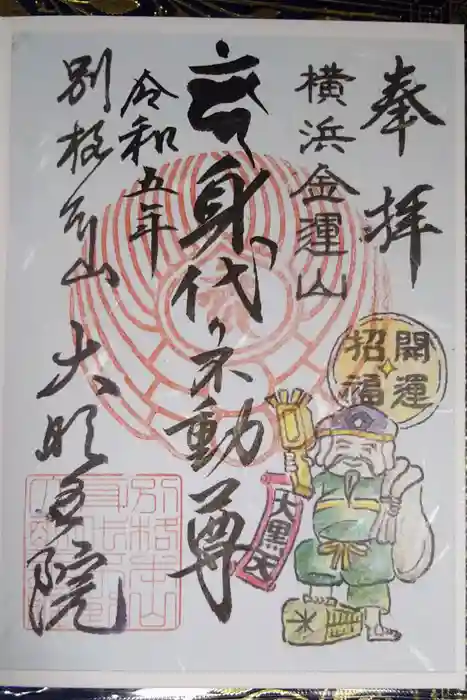 奉拝
横浜金運山
身代り不動尊
令和五年
別格本山 大明王院
開運
招福
大黒天